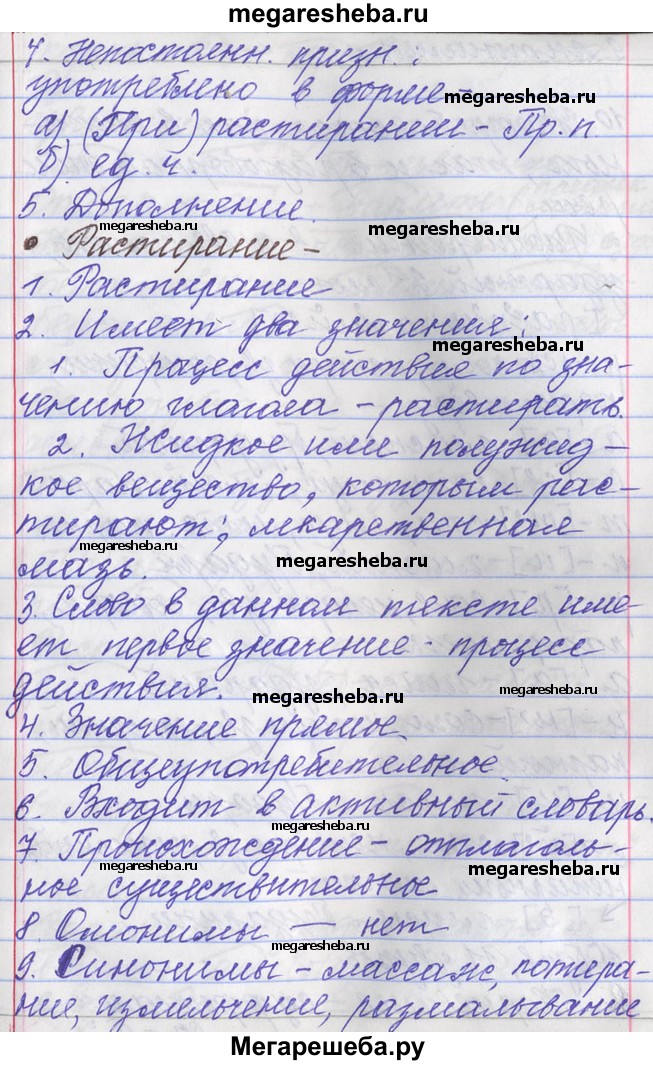 megaresheba.ru
4. Непостоянн. призн.:
употреблено в форме -
megaresheba.ru
а) (При) растирании - Пр.п
megaresheba.ru
б) ед. ч.
5. Дополнение.
megaresheba.ru
megaresheba.ru
• Растирание -
1. Растирание
2. Имеет два значения:
megaresheba.ru
1. Процесс действие по зна-
megaresheba.ru
чению глагола - растирать.
2. Жидкое или полужид-
кое вещество, которым рас-
тирают; лекарственная
megaresheba.ru
megaresheba.ru
мазь.
3. Слово в данном тексте име-
ет первое значение - процесс
действия.
megaresheba.ru
megaresheba.ru
4. Значение прямое.
5. Общеупотребительное.
6. Входит в активный словарь.
megaresheba.ru
7. Происхождение - отглаголь-
megaresheba.ru
ное существительное
8. Омонимы — нет
megaresheba.ru
9. Синонимы - массаж, потира-
ние, измельчение, размалывание
Мегарешеба.ру